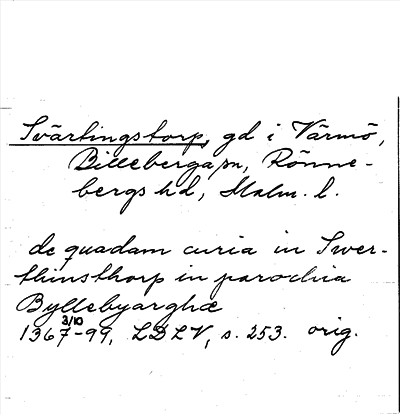 Svärtingstorp, gd i Värmö,
Billeberga sn, Rönne-
bergs hd, Malm. l.
de quadam curia in Swer-
thinsthorp in parochia
Byllebyarghæ
1367 3/10-99, LDLV, s. 253. orig.